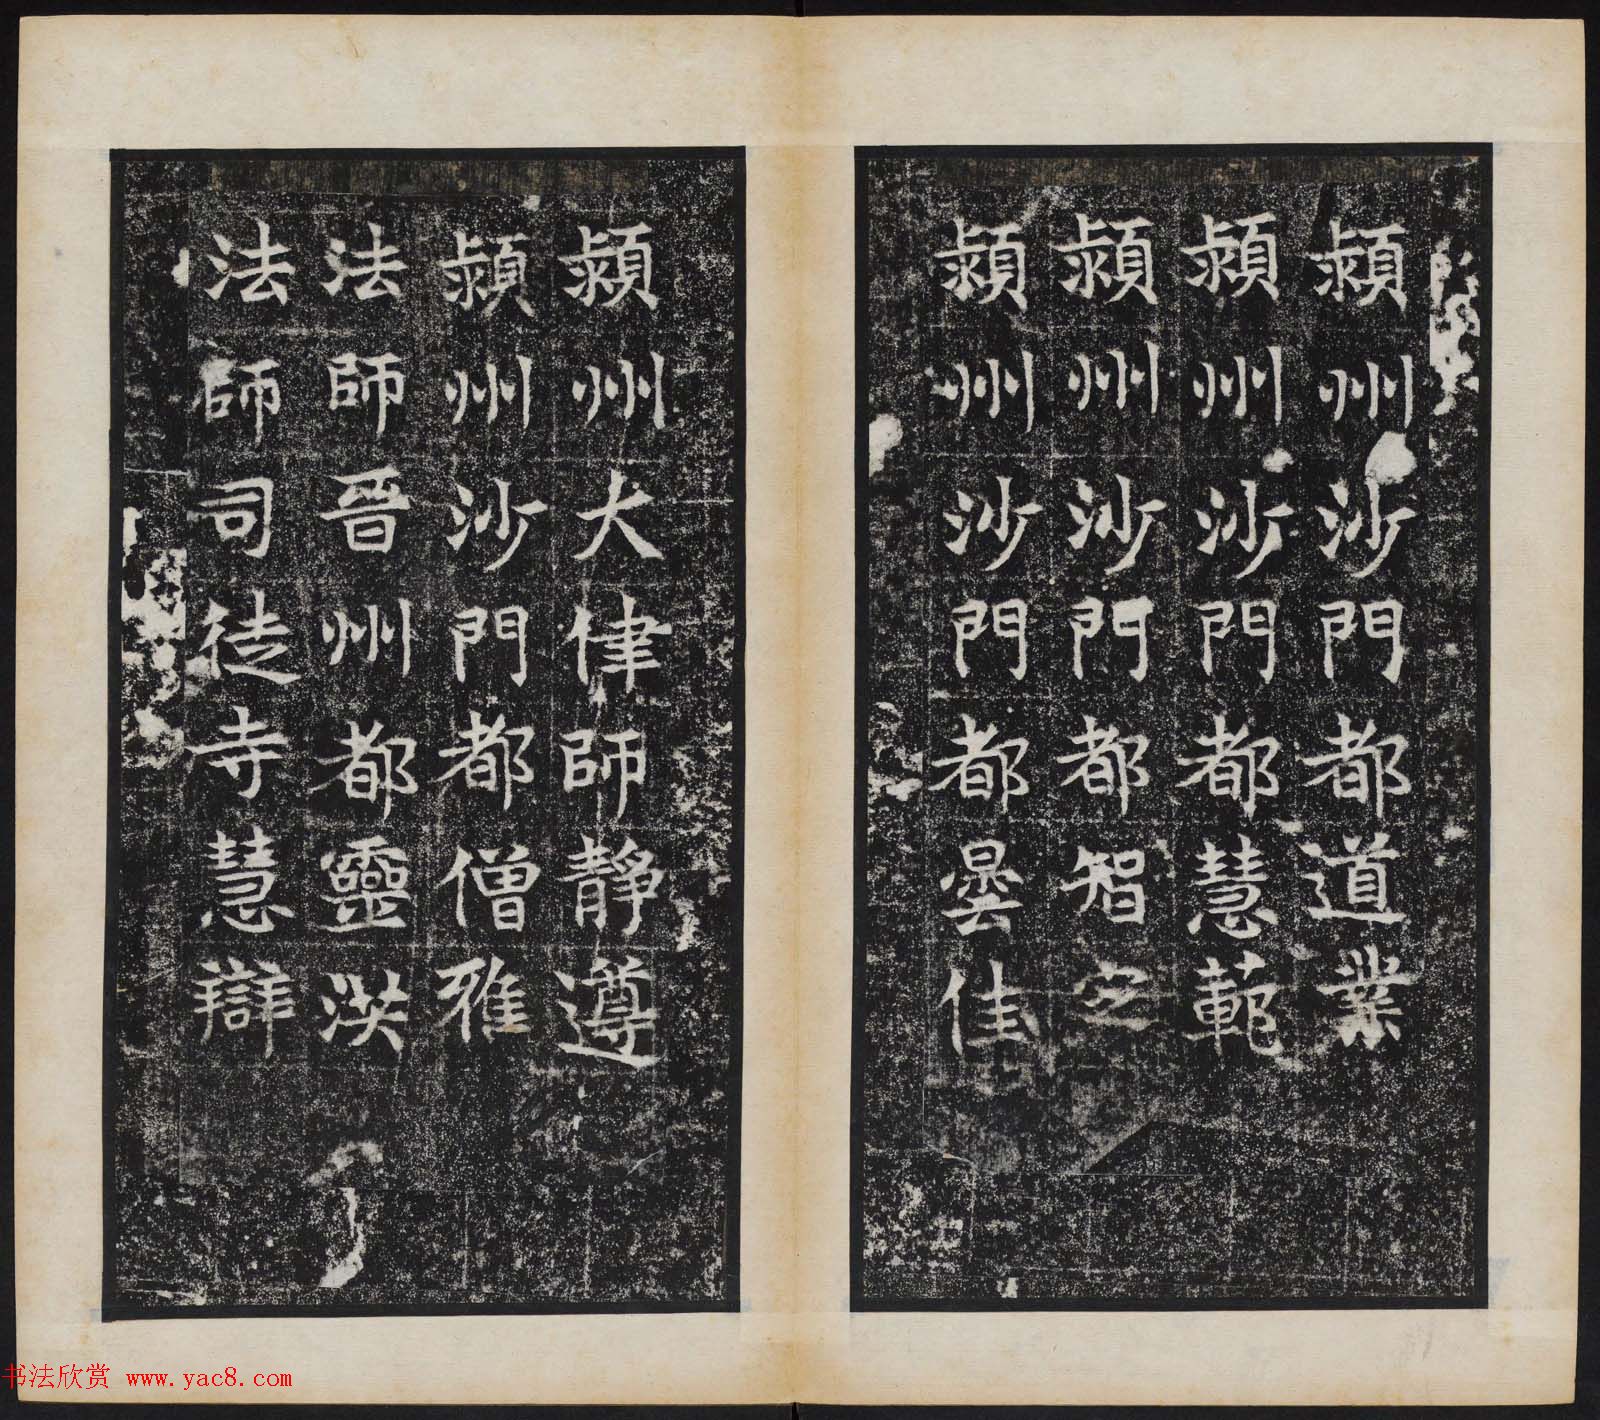 潁州沙門都道業
潁州沙門都慧範
潁州沙門都智
潁州沙門都曇佳
潁州大律師靜遵
潁州沙門都僧雅
法師晉州都靈
法師司徒寺慧辯
书法欣赏 www.yac8.com